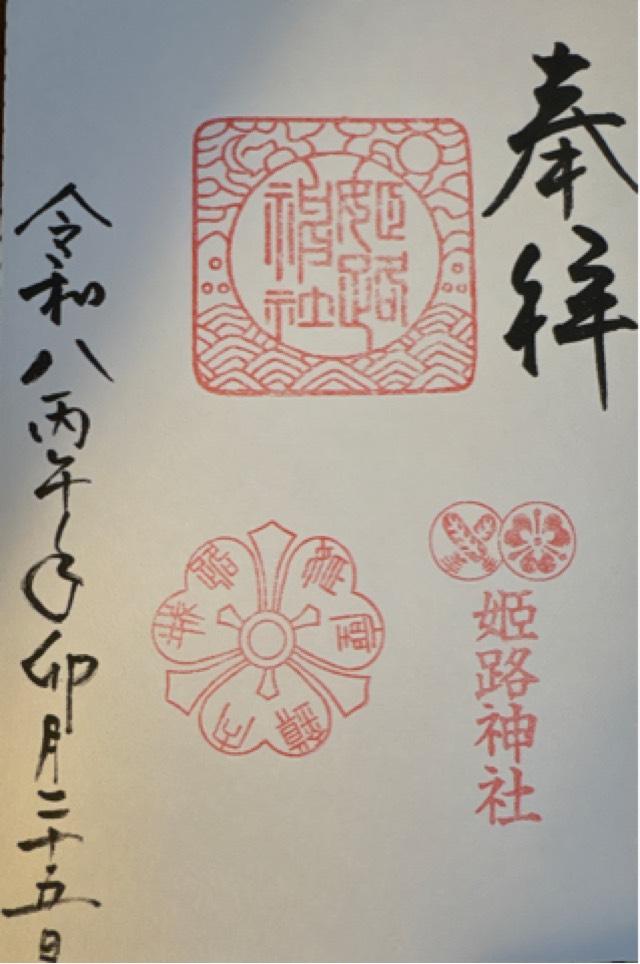 奉拝
姫路神社
姫路
神社
令和八丙午年卯月二十五日